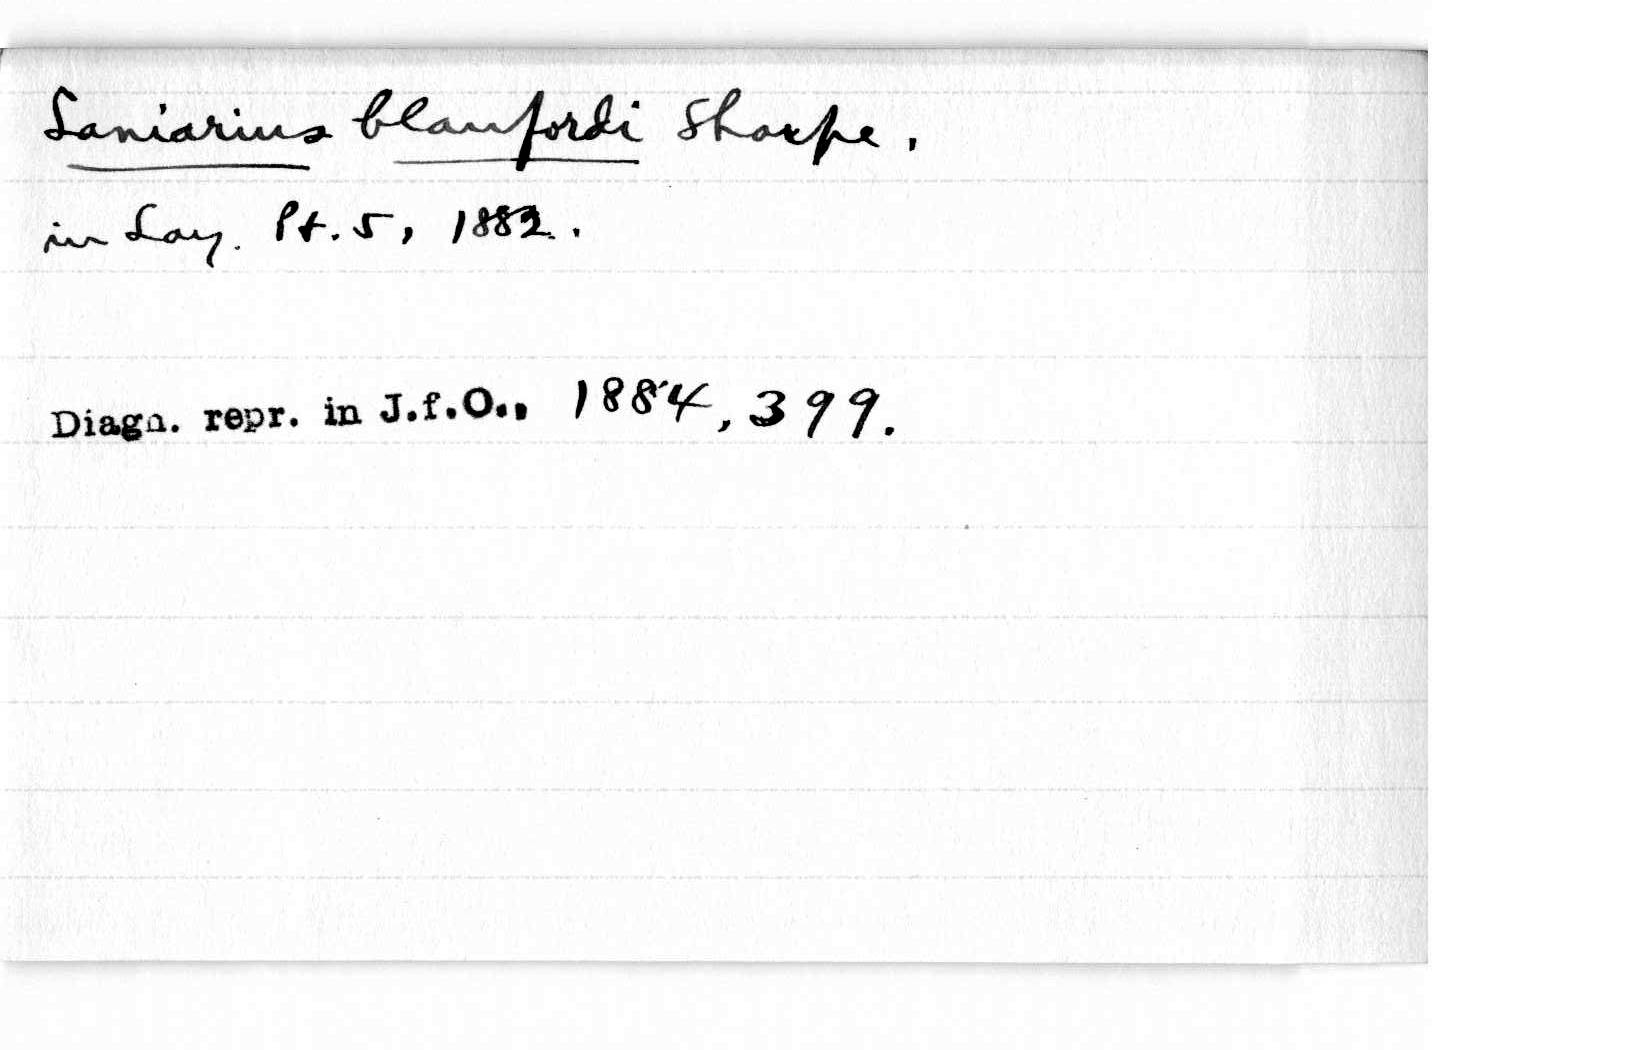 Laniarius blanfordi Sharpe.
in Lay. Pt. 5, 1882.
Diagn. repr. in J.f.O., 1884, 399.